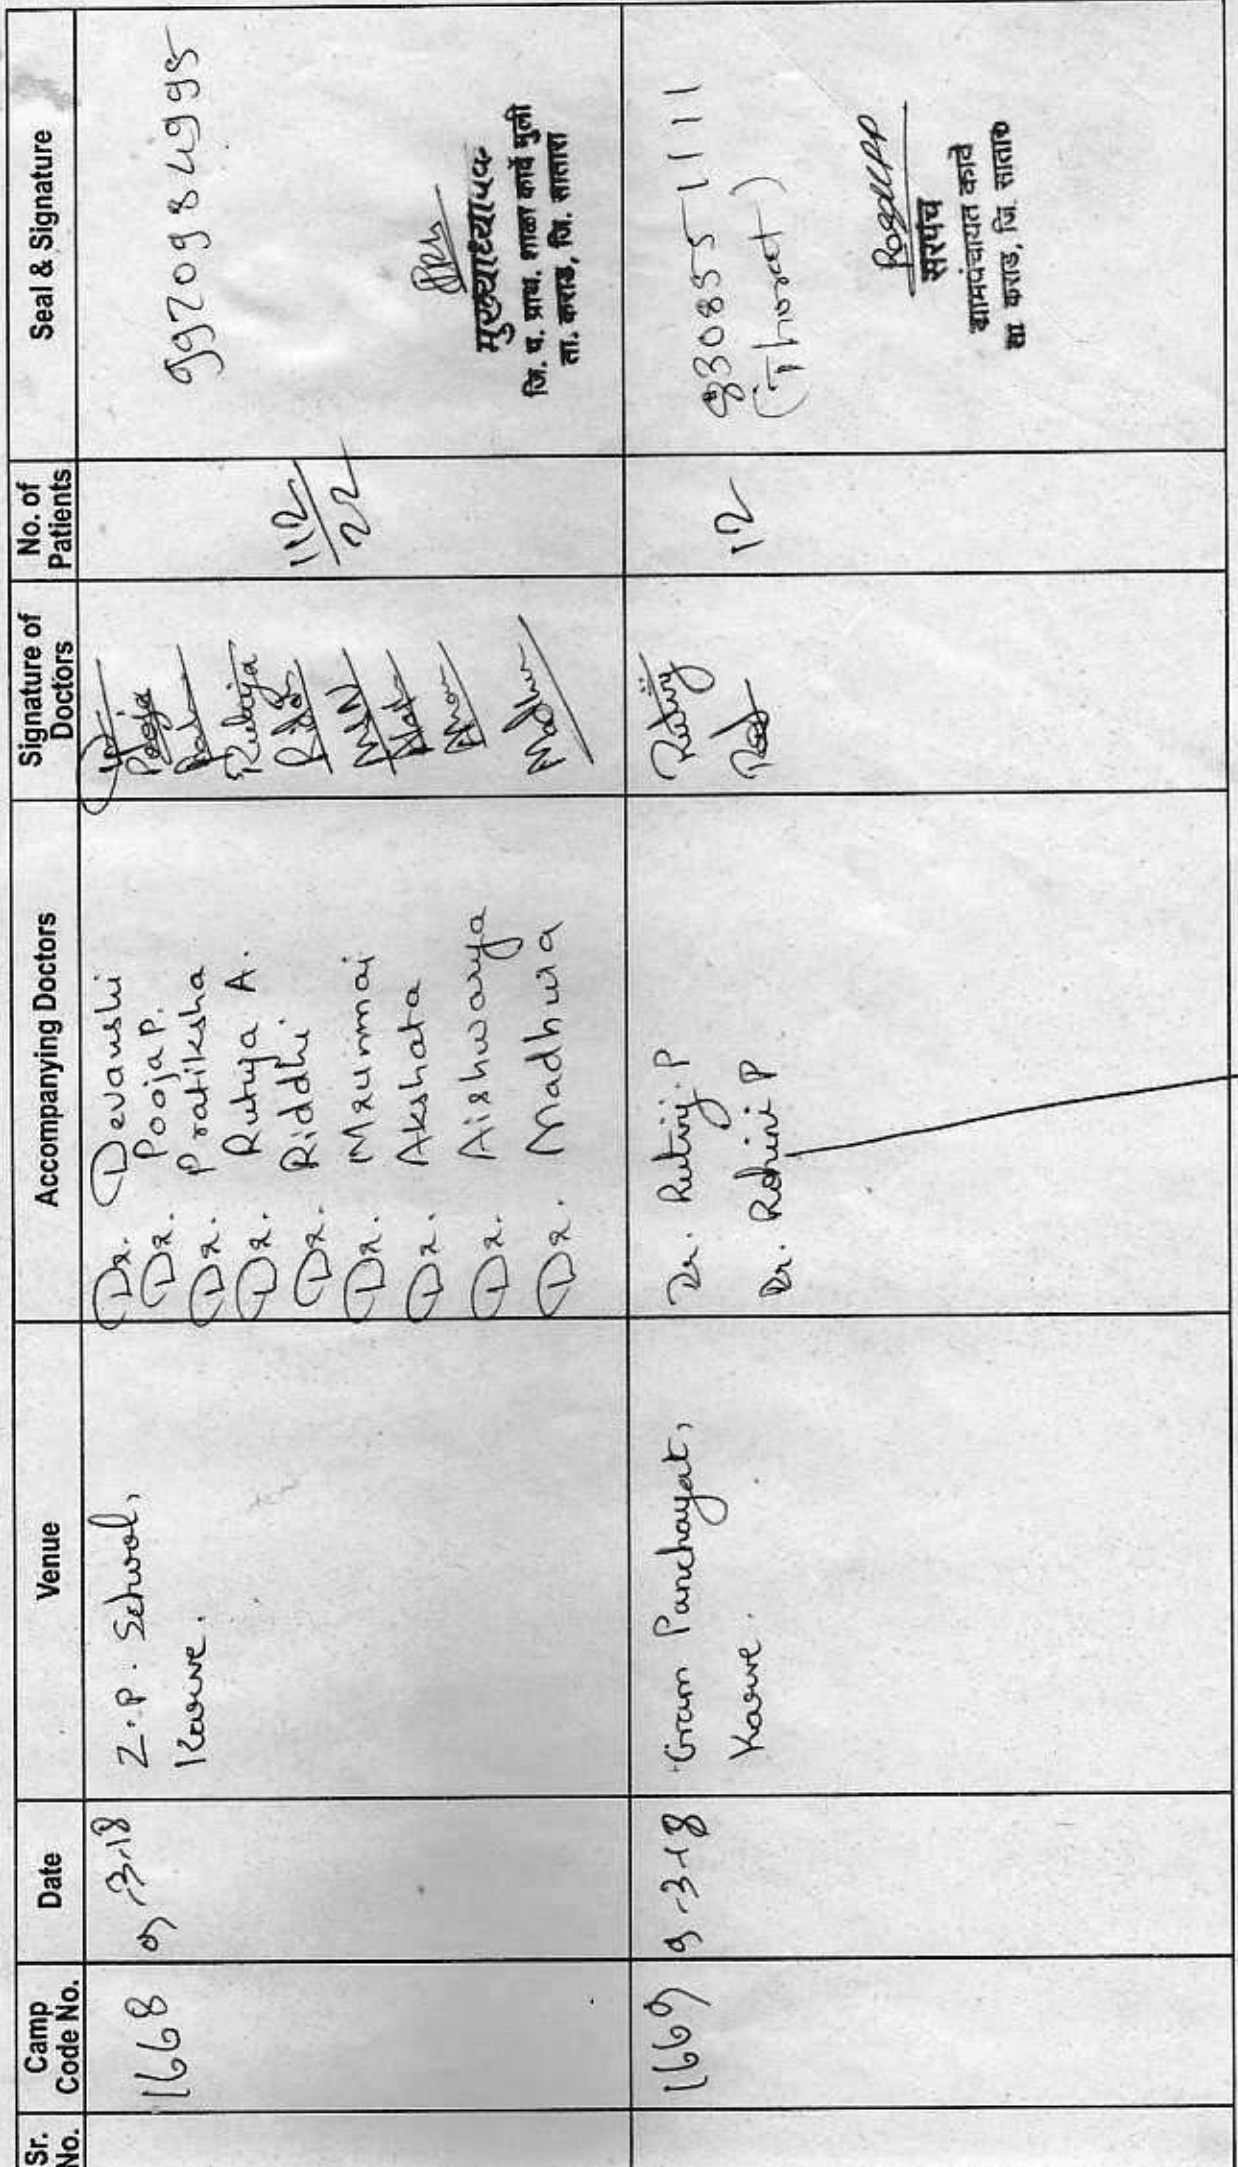 Sr. No.
Camp Code No.
Date
Venue
Accompanying Doctors
Signature of Doctors
No. of Patients
Seal & Signature
1668
9-3-18
Z.P. School,
Karve.
Dr. Devanshi
Dr. Pooja P.
Dr. Pratiksha
Dr. Rutuja A.
Dr. Riddhi
Dr. Mrunmai
Dr. Akshata
Dr. Aishwarya
Dr. Madhura
Pooja
Rutuja
Madhura
112
22
9920984995
मुख्याध्यापक
जि. प. प्राथ. शाळा कार्वे मुली
ता. कराड, जि. सातारा
1669
9-3-18
Gram Panchayat,
Karve.
Dr. Rutvij P
Dr. Rohini P
Rutvij
12
9308551111
(Thorat)
सरपंच
ग्रामपंचायत कार्वे
ता. कराड, जि. सातारा